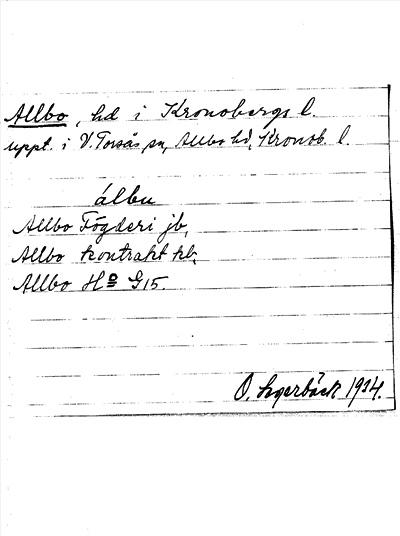 Allbo, hd i Kronobergs l.
uppt. i V. Torsås sn, Allbo hd, Kronob. l.
álbu
Allbo Fögderi jb,
Allbo kontrakt kb,
Allbo Hd G15.
O. Lagerbäck 1914.